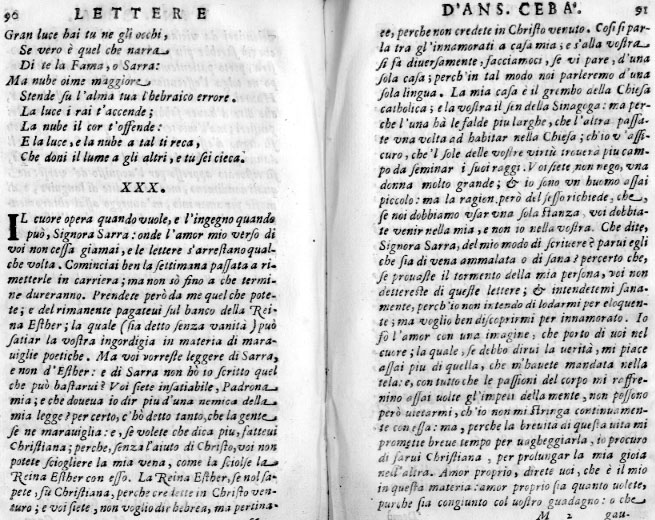 90 LETTERE
Gran luce hai tu ne gli occhi,
Se vero è quel che narra
Di te la Fama, o Sarra:
Ma nube oime maggiore
Stende su l'alma tua l'hebraico errore.
La luce i rai t'accende;
La nube il cor t'offende:
E la luce, e la nube a tal ti reca,
Che doni il lume a gli altri, e tu sei cieca.
XXX.
IL cuore opera quando vuole, e l'ingegno quando
può, Signora Sarra: onde l'amor mio verso di
voi non cessa giamai, e le lettere s'arrestano qual-
che volta. Cominciai ben la settimana passata a ri-
metterle in carriera; ma non sò fino a che termi-
ne dureranno. Prendete però da me quel che pote-
te; e del rimanente pagateui sul banco della Rei-
na Esther; la quale (sia detto senza vanità) può
satiar la vostra ingordigia in materia di mara-
uiglie poetiche. Ma voi vorreste leggere di Sarra,
e non d'Esther: e di Sarra non hò io scritto quel
che può bastarui? Voi siete insatiabile, Padrona
mia; e che doueua io dir piu d'una nemica della
mia legge? per certo, c'hò detto tanto, che la gente
se ne marauiglia: e, se volete che dica piu, fatteui
Christiana; perche, senza l'aiuto di Christo, voi non
potete sciogliere la mia vena, come la sciolse la
Reina Esther con esso. La Reina Esther, se nol sa-
pete, fù Christiana, perche credette in Christo ven-
turo; e voi siete, non voglio dir hebrea, ma pertina-
D'ANS. CEBA'. 91
ce, perche non credete in Christo venuto. Cosi si par-
la tra gl'innamorati a casa mia; e s'alla vostra
si fà diversamente, facciamoci, se vi pare, d'una
sola casa; perch'in tal modo noi parleremo d'una
sola lingua. La mia casa è il grembo della Chiesa
catholica; e la vostra il sen della Sinagoga: ma per-
che l'una hà le falde piu larghe, che l'altra, passa-
te vna volta ad habitar nella Chiesa; ch'io v'assi-
curo, che'l sole delle vostre virtù trouerà piu cam-
po da seminar i suoi raggi. Voi siete non nego, vna
donna molto grande; & io sono vn huomo assai
piccolo: ma la ragion però del sesso richiede, che,
se noi dobbiamo vsar vna sola stanza, voi dobbia-
te venir nella mia, e non io nella vostra. Che dite,
Signora Sarra, del mio modo di scriuere? parui egli
che sia di vena ammalata o di sana? percerto che,
se prouaste il tormento della mia persona, voi non
detereste di queste lettere; & intendetemi sana-
mente, perch'io non intendo di lodarmi per eloquen-
te; ma voglio ben discoprirmi per innamorato. Io
fò l'amor con una imagine, che porto di uoi nel
cuore; la quale, se debbo dirui la verità, mi piace
assai piu di quella, che m'hauete mandata nella
tela: e, con tutto che le passioni del corpo mi raffre-
nino assai uolte gl'impeti della mente, non possono
però uietarmi, ch'io non mi stringa continuamen-
te con essa: ma, perche la breuità di questa uita mi
promette breue tempo per uagheggiarla, io procuro
di farui Christiana, per prolungar la mia gioia
nell'altra. Amor proprio, direte uoi, che è il mio
in questa materia: amor proprio sia quanto uolete,
purche sia congiunto col uostro guadagno: o che
M 2 gau-